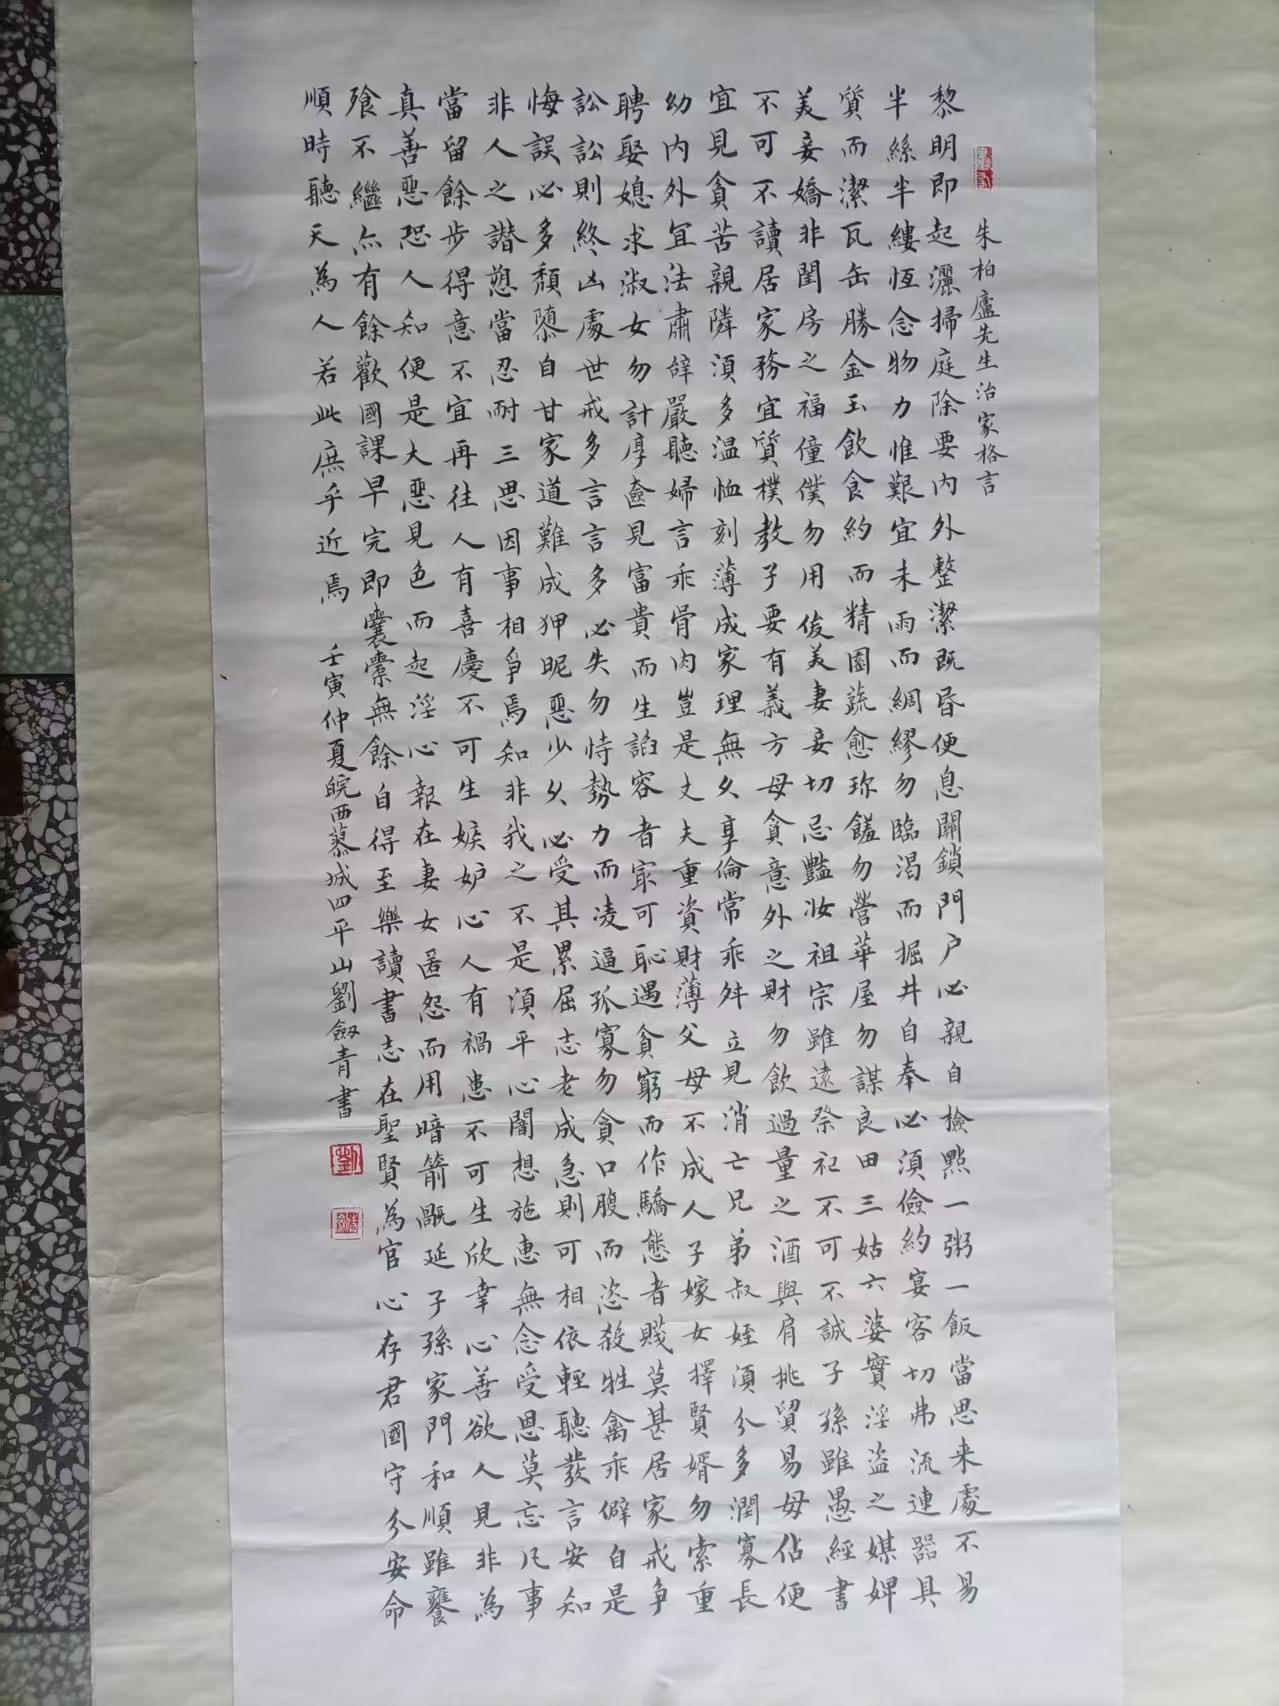 朱柏廬先生治家格言
黎明即起灑掃庭除要內外整潔既昏便息關鎖門户必親自檢點一粥一飯當思来處不易
半絲半縷恆念物力惟艱宜未雨而綢繆勿臨渴而掘井自奉必須儉約宴客切弗流連器具
質而潔瓦缶勝金玉飲食約而精園蔬愈珍饈勿營華屋勿謀良田三姑六婆實淫盜之媒婢
美妾嬌非閨房之福僮僕勿用俊美妻妾切忌豔妝祖宗雖遠祭祀不可不誠子孫雖愚經書
不可不讀居家務宜質樸教子要有義方毋貪意外之財勿飲過量之酒與肩挑貿易毋佔便
宜見貪苦親隣須多温恤刻薄成家理無久享倫常乖舛立見消亡兄弟叔姪須分多潤寡長
幼內外宜法肅辭嚴聽婦言乖骨肉豈是丈夫重資財薄父母不成人子嫁女擇賢婿勿索重
聘娶媳求淑女勿計厚奩見富貴而生諂容者寂可恥遇貪窮而作驕態者賤莫甚居家戒爭
訟訟則終凶處世戒多言言多必失勿恃勢力而凌逼孤寡勿貪口腹而恣殺牲禽乖僻自是
悔誤必多頹隳自甘家道難成狎昵惡少久必受其累屈志老成急則可相依輕聽發言安知
非人之譖愬當忍耐三思因事相爭焉知非我之不是須平心闇想施惠無念受恩莫忘凡事
當留餘步得意不宜再往人有喜慶不可生嫉妒心人有禍患不可生欣幸心善欲人見非為
真善惡恐人知便是大惡見色而起淫心報在妻女匿怨而用暗箭禍延子孫家門和順雖饔
飱不繼亦有餘歡國課早完即囊橐無餘自得至樂讀書志在聖賢為官心存君國守分安命
順時聽天為人若此庶乎近焉 壬寅仲夏皖西蓼城四平山劉劔青書